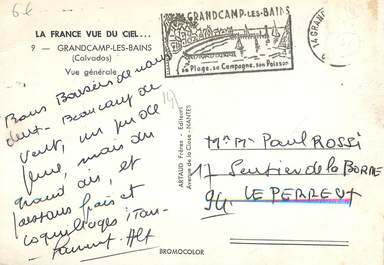 6 €
LA FRANCE VUE DU CIEL...
9 - GRANDCAMP-LES-BAINS
(Calvados)
Vue générale
GRANDCAMP-LES-BAINS
sa Plage, sa Campagne, son Poisson
14 GRAND
Bons Baisers de nous
deux - Beaucoup de
vent, un
mais du
grand air, et
poissons frais et
coquillages
Laurent
ARTAUD Frères - Editeurs
Avenue de la Close - NANTES
Mr Mme Paul ROSSI
17 Sentier de la BORNE
94. LE PERREUX
BROMOCOLOR